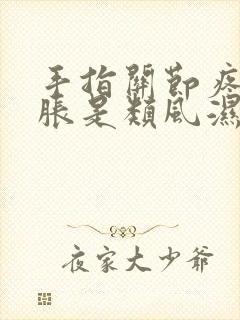 手指關節疼
脹是類風濕
夜家大少爺